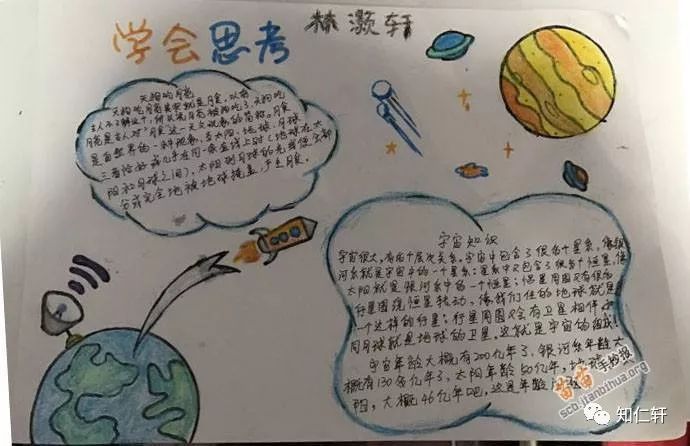 学会思考
林灏轩
天狗吃月亮
天狗吃月亮其实就是月食，以前
古人不了解这个，所以说月亮被狗吃了，天狗吃
月亮是古人对"月食"这一天文现象的简称。月食
是自然界的一种现象，当太阳、地球、月球
三者恰好或几乎在同一条直线上时（地球在太
阳和月球之间），太阳到月球的光线便会部
分或完全地被地球掩盖，产生月食。
宇宙知识
宇宙很大，有四个层次关系。宇宙中包含了很多个星系，像银
河系就是宇宙中的一个星系；星系中又包含了很多个恒星，像
太阳就是银河系中的一个恒星；恒星周围又有很多
行星围绕恒星转动，像我们住的地球就是
一个这样的行星；行星周围又会有卫星相伴，
同月球就是地球的卫星。这就是宇宙的组成
宇宙年龄大概有200亿年了，银河系年龄大
概有130多亿年了，太阳年龄50亿年，地球
阳，大概46亿年吧，这是年龄
苗苗手抄报
scb.jianbihua.org
知仁轩